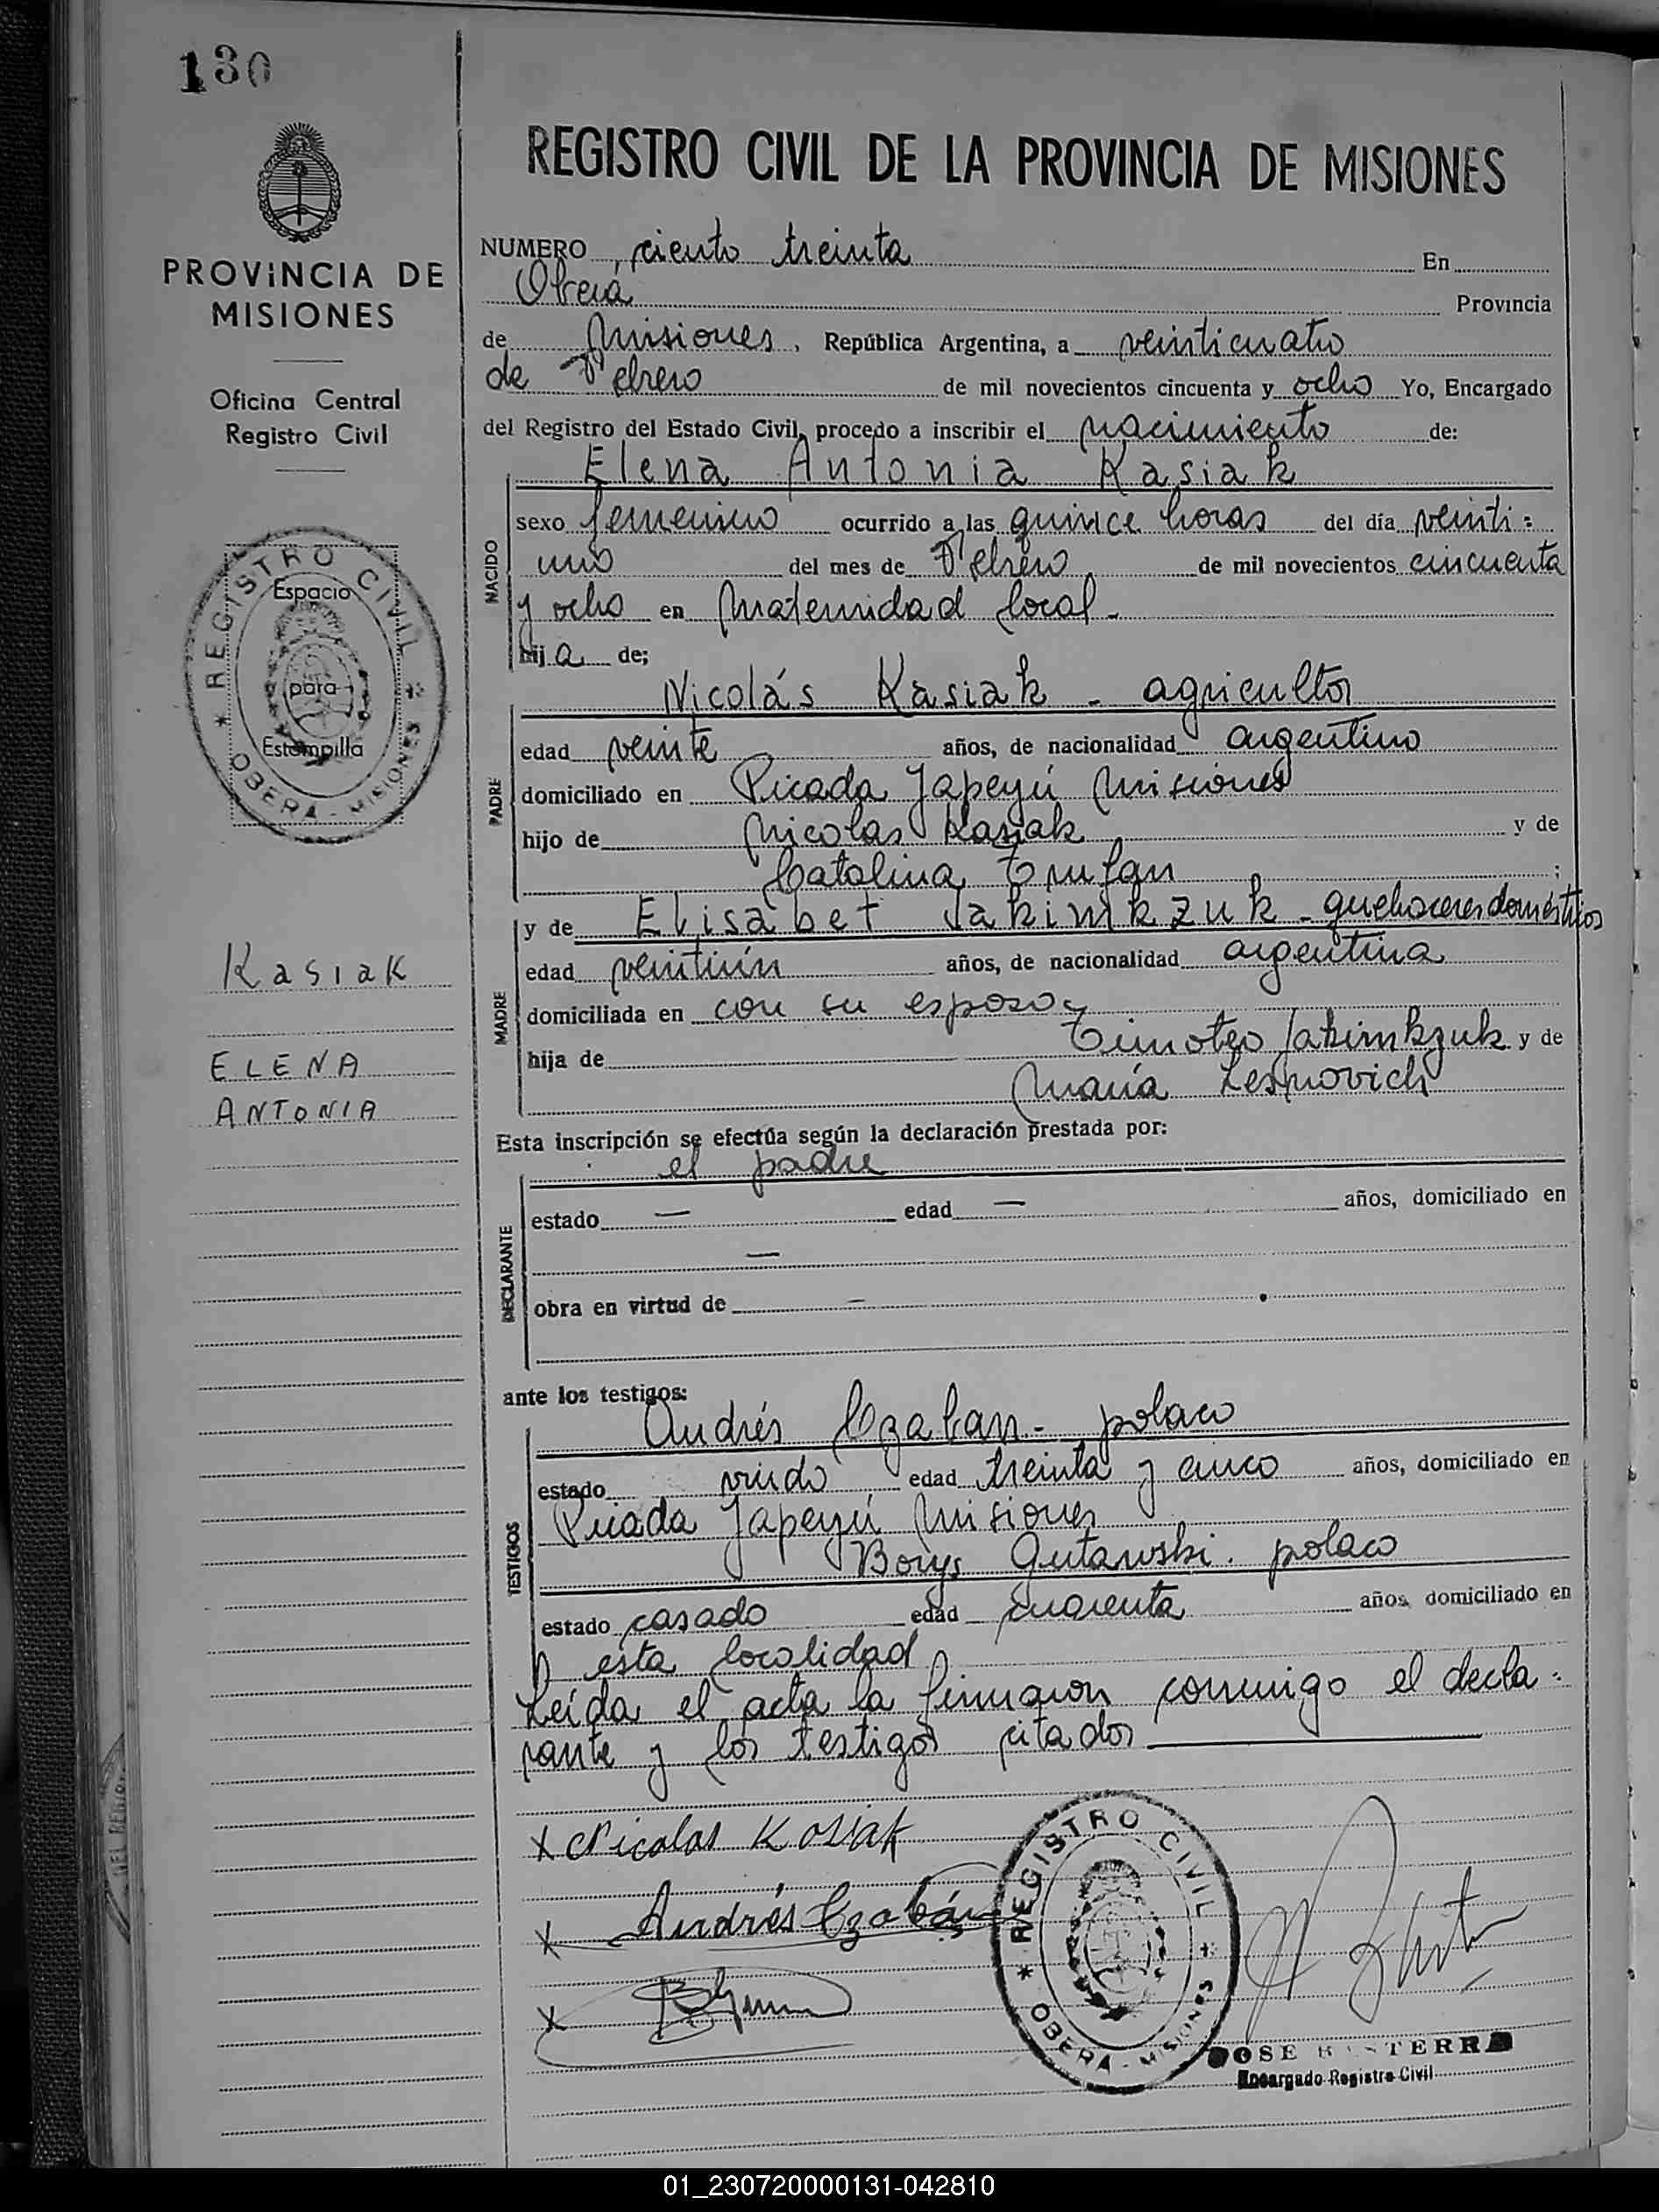 130
PROVINCIA DE
MISIONES
Oficina Central
Registro Civil
REGISTRO CIVIL
Espacio
para
Estampilla
OBERA - MISIONES
Kasiak
ELENA
ANTONIA
REGISTRO CIVIL DE LA PROVINCIA DE MISIONES
NUMERO ciento treinta En
Oberá Provincia
de Misiones, República Argentina, a veinticuatro
de Febrero de mil novecientos cincuenta y ocho Yo, Encargado
del Registro del Estado Civil, procedo a inscribir el nacimiento de:
Elena Antonia Kasiak
NACIDO
sexo femenino ocurrido a las quince horas del día veinti=
uno del mes de Febrero de mil novecientos cincuenta
y ocho en Maternidad local-
hija de;
PADRE
Nicolás Kasiak - agricultor
edad veinte años, de nacionalidad argentino
domiciliado en Picada Japeyú Misiones
hijo de Nicolas Kasiak y de
Catalina Trufan;
MADRE
y de Elisabet Jakimkzuk - quehaceres domésticos
edad veintiún años, de nacionalidad argentina
domiciliada en con su esposo-
hija de Timoteo Jakimkzuk y de
María
Esta inscripción se efectúa según la declaración prestada por:
el padre
DECLARANTE
estado — edad — años, domiciliado en
—
obra en virtud de —
ante los testigos:
TESTIGOS
Andrés Czaban - polaco
estado viudo edad treinta y cinco años, domiciliado en
Picada Japeyú Misiones
Borys Gutawski. polaco
estado casado edad cuarenta años, domiciliado en
esta localidad
Leída el acta la firmaron conmigo el decla=
rante y los testigos citados
x Nicolas Kasiak
x Andrés Czabán
x
REGISTRO CIVIL
OBERA - MISIONES
JOSE BASTERRA
Encargado Registro Civil
01_230720000131-042810